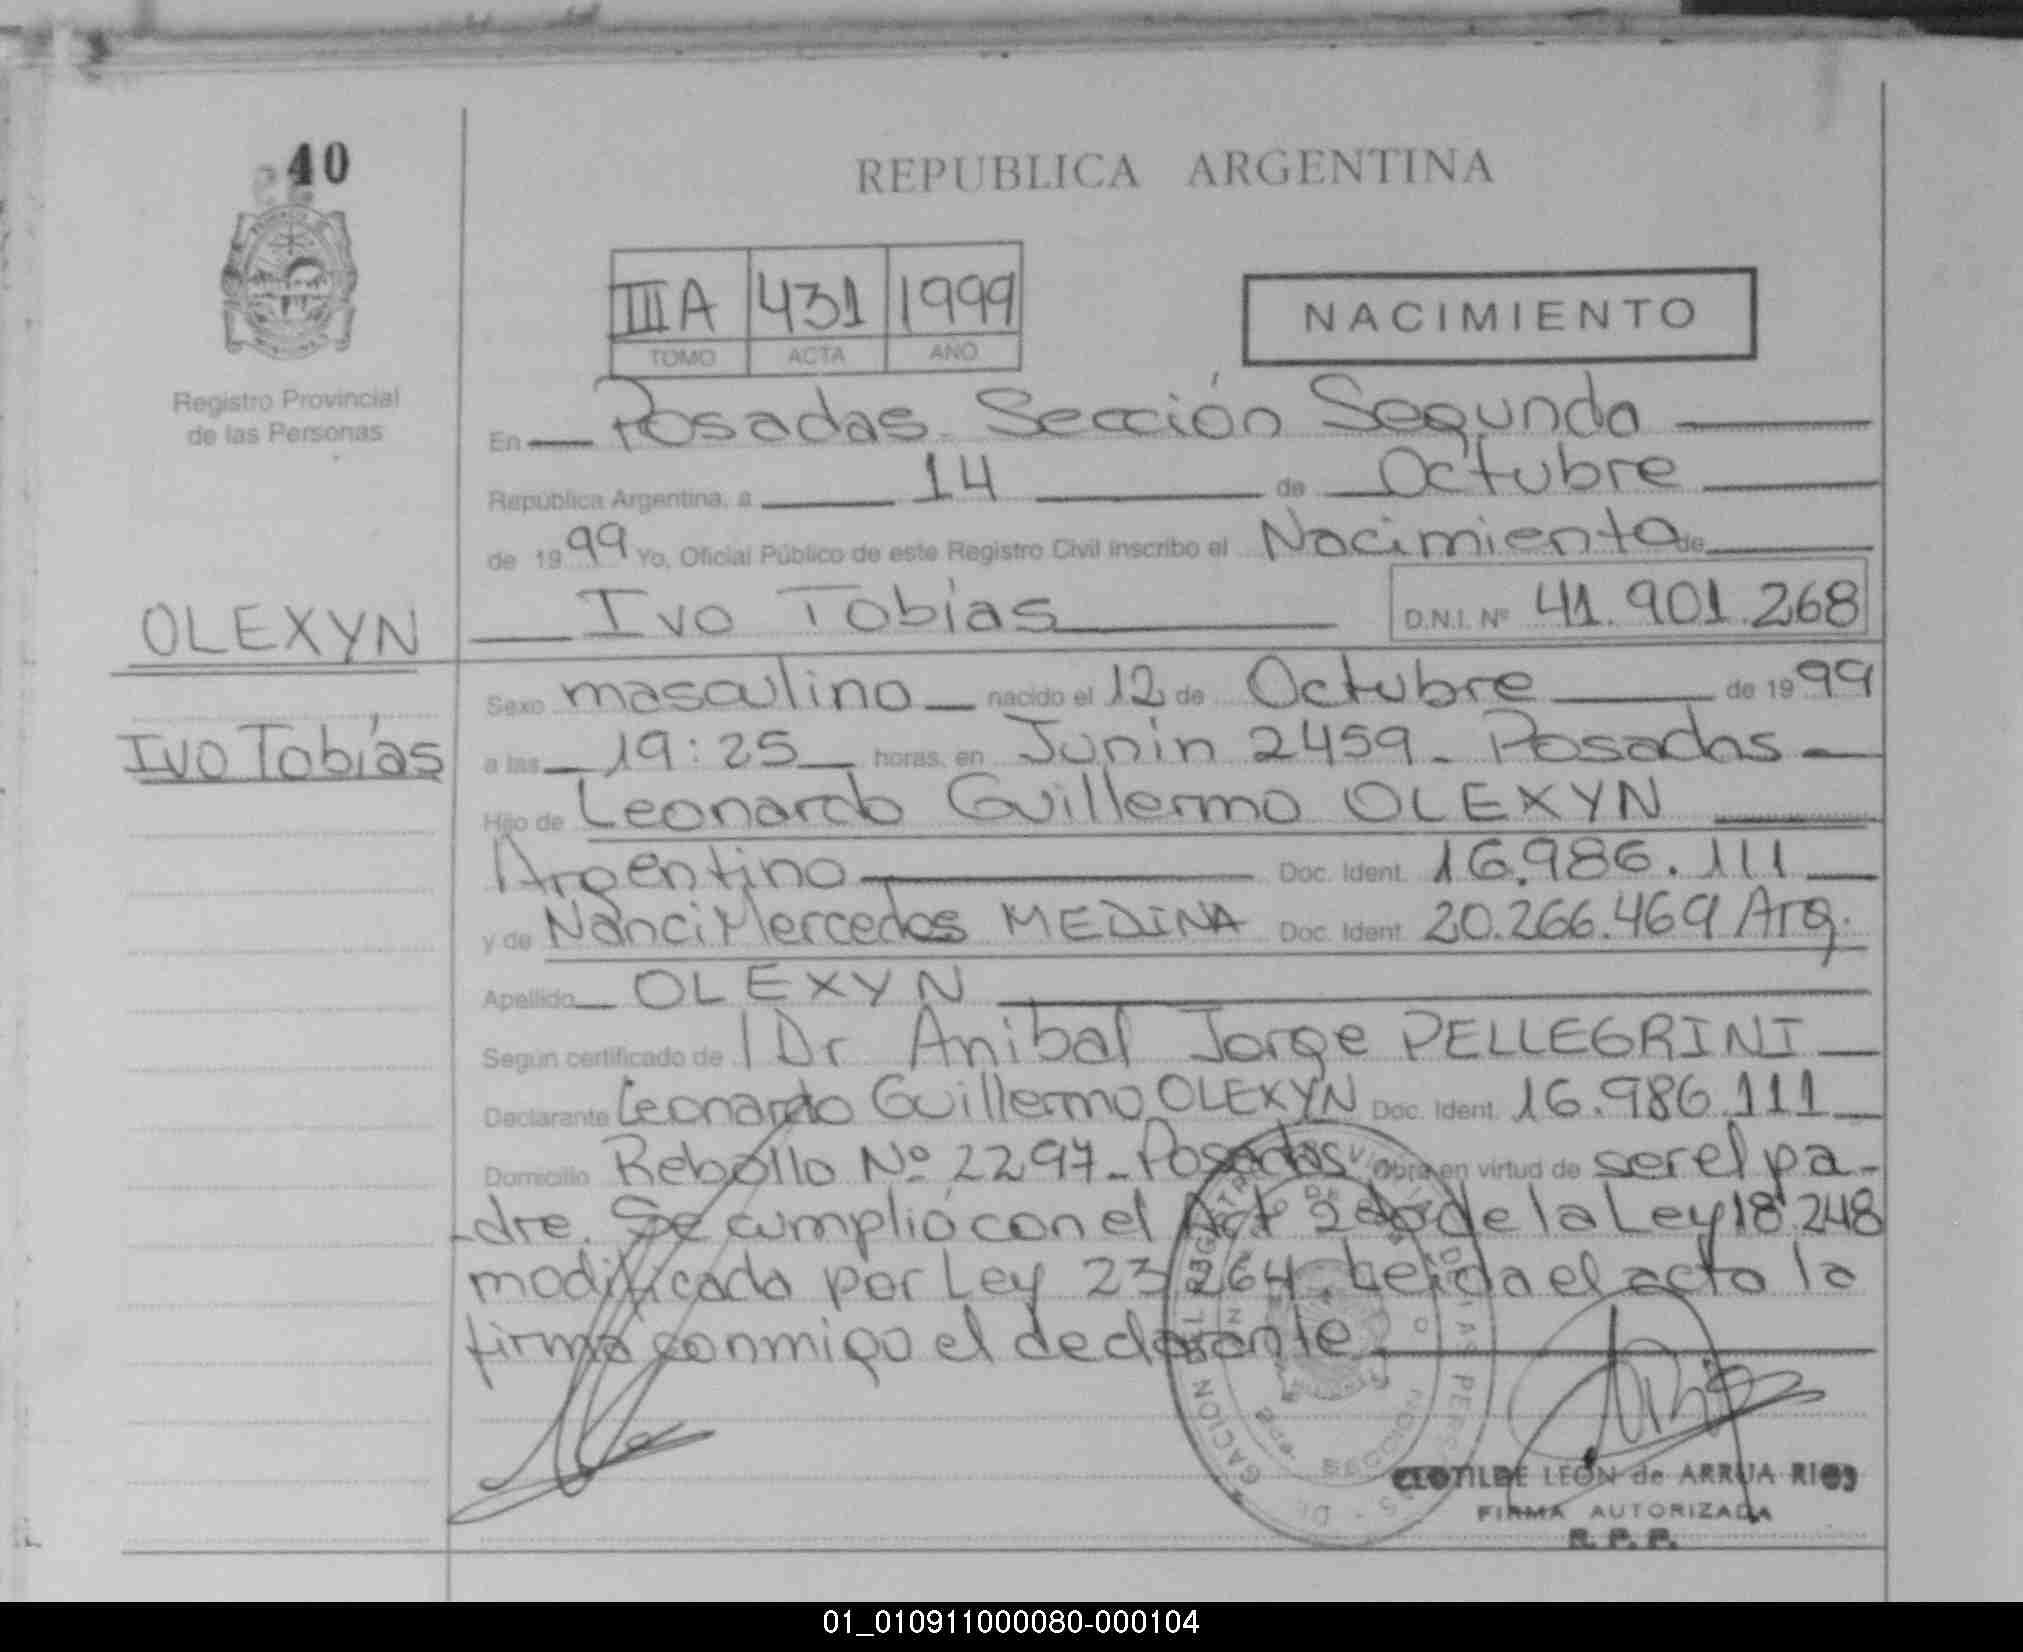 40
REPUBLICA ARGENTINA
IIIA 431 1999
TOMO ACTA AÑO
NACIMIENTO
Registro Provincial
de las Personas
En Posadas. Sección Segunda
República Argentina, a 14 de Octubre
de 1999 Yo, Oficial Público de este Registro Civil inscribo el Nacimiento de
Ivo Tobías D.N.I. Nº 41.901.268
OLEXYN
Ivo Tobías
Sexo masculino nacido el 12 de Octubre de 1999
a las 19:25 horas, en Junin 2459 - Posadas
Hijo de Leonardo Guillermo OLEXYN
Argentino Doc. Ident. 16.986.111
y de Nanci Mercedes MEDINA Doc. Ident. 20.266.469 Arg.
Apellido OLEXYN
Según certificado de Dr Anibal Jorge PELLEGRINI
Declarante Leonardo Guillermo OLEXYN Doc. Ident. 16.986.111
Domicilio Rebollo Nº 2297 - Posadas Obra en virtud de ser el pa-
-dre. Se cumplió con el Act 2do de la Ley 18.248
modificada por Ley 23.264 Leida el acta la
firma conmigo el declarante
CLOTILDE LEÓN de ARRUA RIOS
FIRMA AUTORIZADA
R. P. P.
01_010911000080-000104